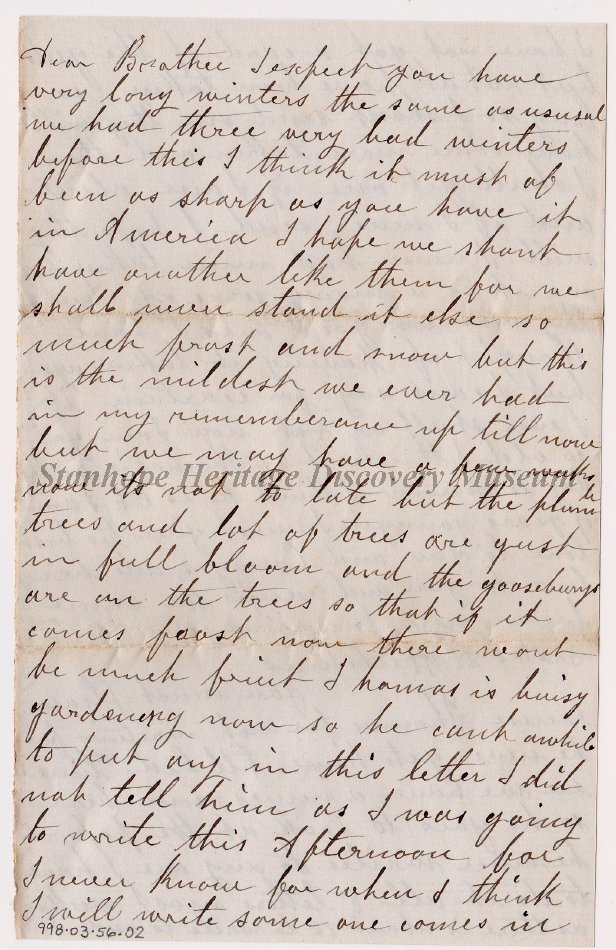 Dear Brother I expect you have
very long winters the same as ususal
we had three very bad winters
before this I think it must of
been as sharp as you have it
in America I hope we shant
have another like them for we
shall never stand it else so
much frost and snow but this
is the mildest we ever had
in my rememberance up till now
but we may have a few
Stanhope Heritage Discovery Museum
now its not to late but the plum
trees and lot of trees are yust
in full bloom and the gooseburys
are on the trees so that if it
comes froost now there wont
be much friut Thomas is buisy
gardening now so he cant awhile
to put any in this letter I did
not tell him as I was going
to write this Afternoon for
I never Know for when I think
I will write some one comes in
998·03·56·02